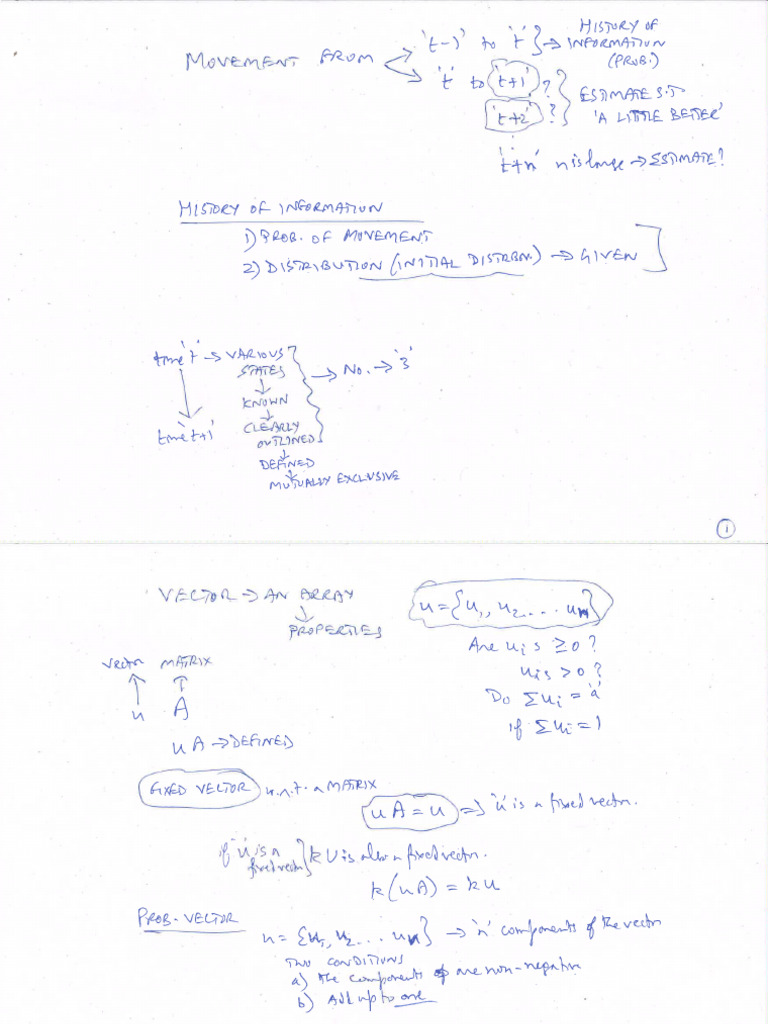 MOVEMENT FROM
't-1' to 't' } → HISTORY OF INFORMATION (PROB.)
't' to 't+1' ?
't+2' ?
ESTIMATE S.T
'A LITTLE BETTER'
't+n' n is large → ESTIMATE?
HISTORY OF INFORMATION
1) PROB. OF MOVEMENT
2) DISTRIBUTION (INITIAL DISTRBN.) → GIVEN
time 't' → VARIOUS STATES
→ No. → '3'
↓
KNOWN
↓
time 't+1' CLEARLY OUTLINED
↓
DEFINED
↓
MUTUALLY EXCLUSIVE
1
VECTOR → AN ARRAY
↓
PROPERTIES
u = {u1, u2 .... un}
Are ui s ≥ 0 ?
ui s > 0 ?
Do Σui = 'a'
if Σui = 1
VECTOR MATRIX
↑ ↑
u A
uA → DEFINED
FIXED VECTOR w.r.t. a MATRIX
uA = u ⇒ 'u' is a fixed vector.
if 'u' is a fixed vector } kU is also a fixed vector.
k(uA) = ku
PROB. VECTOR
u = {u1, u2 ... un} → 'n' components of the vector
TWO CONDITIONS
a) the components are non-negative
b) Add up to one